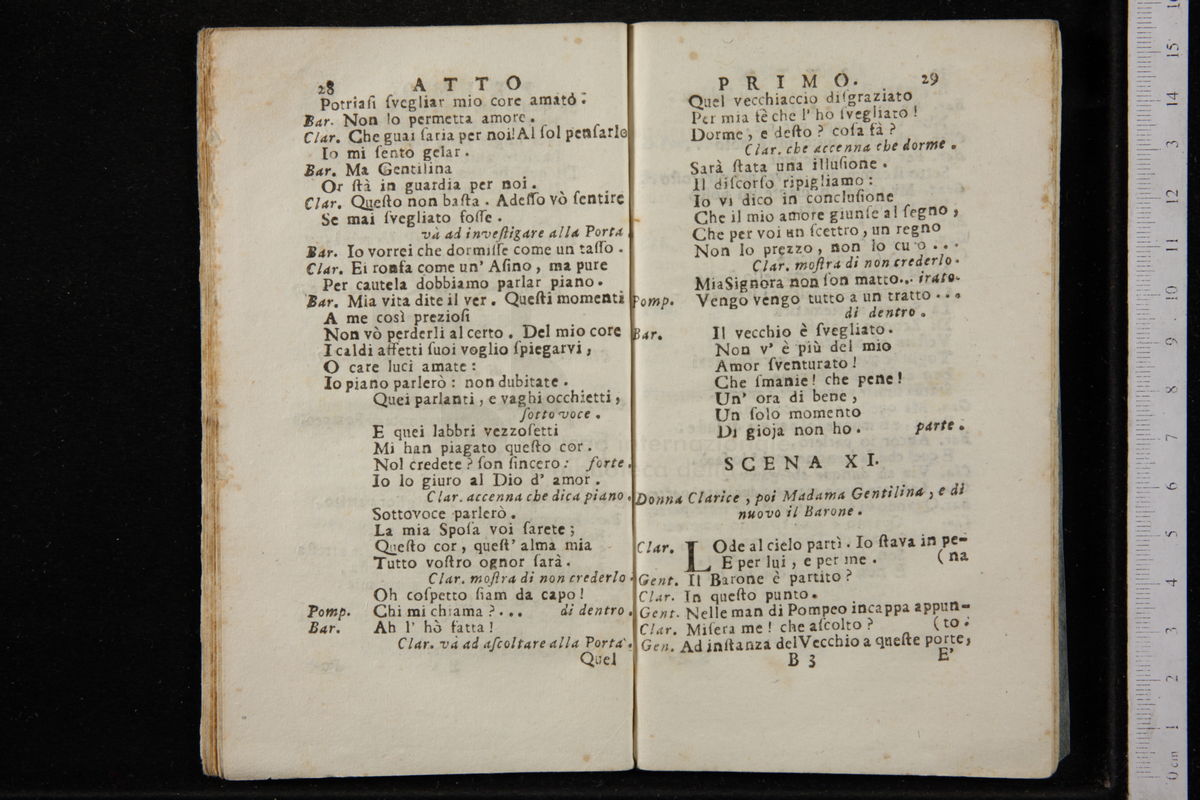 28 ATTO
Potriasi ſvegliar mio core amato.
Bar. Non lo permetta amore.
Clar. Che guai ſaria per noi! Al ſol penſarlo
Io mi ſento gelar.
Bar. Ma Gentilina
Or ſtà in guardia per noi.
Clar. Queſto non baſta. Adeſſo vò ſentire
Se mai ſvegliato foſſe.
và ad inveſtigare alla Porta.
Bar. Io vorrei che dormiſſe come un taſſo.
Clar. Ei ronfa come un' Aſino, ma pure
Per cautela dobbiamo parlar piano.
Bar. Mia vita dite il ver. Queſti momenti
A me così prezioſi
Non vò perderli al certo. Del mio core
I caldi affetti ſuoi voglio ſpiegarvi,
O care luci amate:
Io piano parlerò: non dubitate.
Quei parlanti, e vaghi occhietti,
ſotto voce.
E quei labbri vezzoſetti
Mi han piagato queſto cor.
Nol credete? ſon ſincero: forte.
Io lo giuro al Dio d' amor.
Clar. accenna che dica piano.
Sottovoce parlerò.
La mia Spoſa voi ſarete;
Queſto cor, queſt' alma mia
Tutto voſtro ognor ſarà.
Clar. moſtra di non crederlo.
Oh coſpetto ſiam da capo!
Pomp. Chi mi chiama?... di dentro.
Bar. Ah l' hò fatta!
Clar. và ad aſcoltare alla Porta.
Quel
PRIMO. 29
Quel vecchiaccio diſgraziato
Per mia fè che l' ho ſvegliato!
Dorme, e deſto? coſa fà?
Clar. che accenna che dorme.
Sarà ſtata una illuſione.
Il diſcorſo ripigliamo:
Io vi dico in concluſione
Che il mio amore giunſe al ſegno,
Che per voi un ſcettro, un regno
Non lo prezzo, non lo curo...
Clar. moſtra di non crederlo.
Mia Signora non ſon matto... irato.
Pomp. Vengo vengo tutto a un tratto...
di dentro.
Bar. Il vecchio è ſvegliato.
Non v' è più del mio
Amor ſventurato!
Che ſmanie! che pene!
Un' ora di bene,
Un ſolo momento
Di gioja non ho. parte.
SCENA XI.
Donna Clarice, poi Madama Gentilina, e di
nuovo il Barone.
Clar. LOde al cielo partì. Io ſtava in pe-
E per lui, e per me. (na
Gent. Il Barone è partito?
Clar. In queſto punto.
Gent. Nelle man di Pompeo incappa appun-
Clar. Miſera me! che aſcolto? (to.
Gen. Ad inſtanza del Vecchio a queſte porte,
B 3 E'